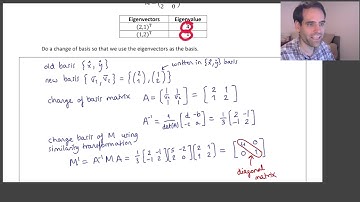 Eigenvectors Eigenvalue
(2,1)ᵀ
(1,2)ᵀ
Do a change of basis so that we use the eigenvectors as the basis.
old basis { x̂, ŷ }
written in {x̂,ŷ} basis
new basis { v₁, v₂ } = { (2 1), (1 2) }
change of basis matrix A = ( v₁ v₂ ) = [ 2 1 ; 1 2 ]
A⁻¹ = 1/det(A) [ d -b ; -c a ] = 1/3 [ 2 -1 ; -1 2 ]
change basis of M using
similarity transformation
M' = A⁻¹ M A = 1/3 [ 2 -1 ; -1 2 ] [ 5 -2 ; 2 0 ] [ 2 1 ; 1 2 ] = [ 4 0 ; 0 1 ]
diagonal
matrix